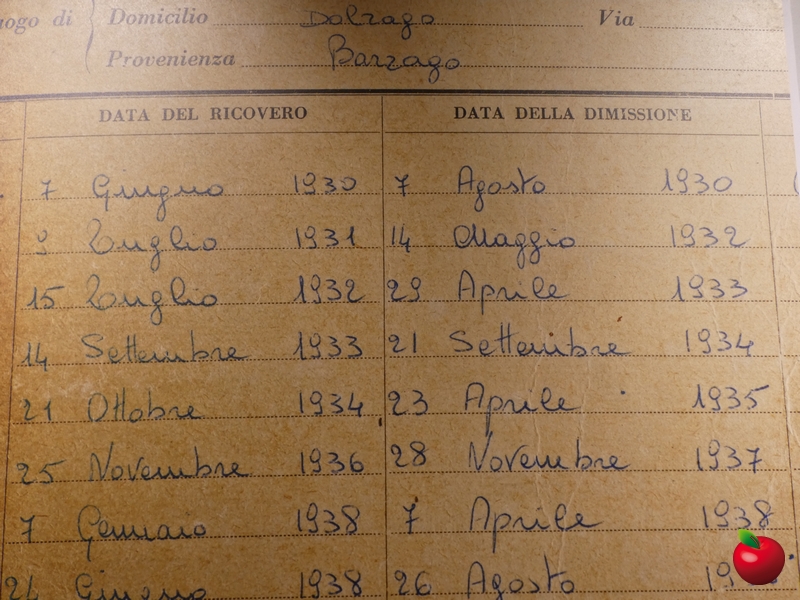 uogo di Domicilio Dolzago Via
Provenienza Barzago
DATA DEL RICOVERO DATA DELLA DIMISSIONE
7 Giugno 1930 7 Agosto 1930
9 Luglio 1931 14 Maggio 1932
15 Luglio 1932 29 Aprile 1933
14 Settembre 1933 21 Settembre 1934
21 Ottobre 1934 23 Aprile 1935
25 Novembre 1936 28 Novembre 1937
7 Gennaio 1938 7 Aprile 1938
24 Giugno 1938 26 Agosto